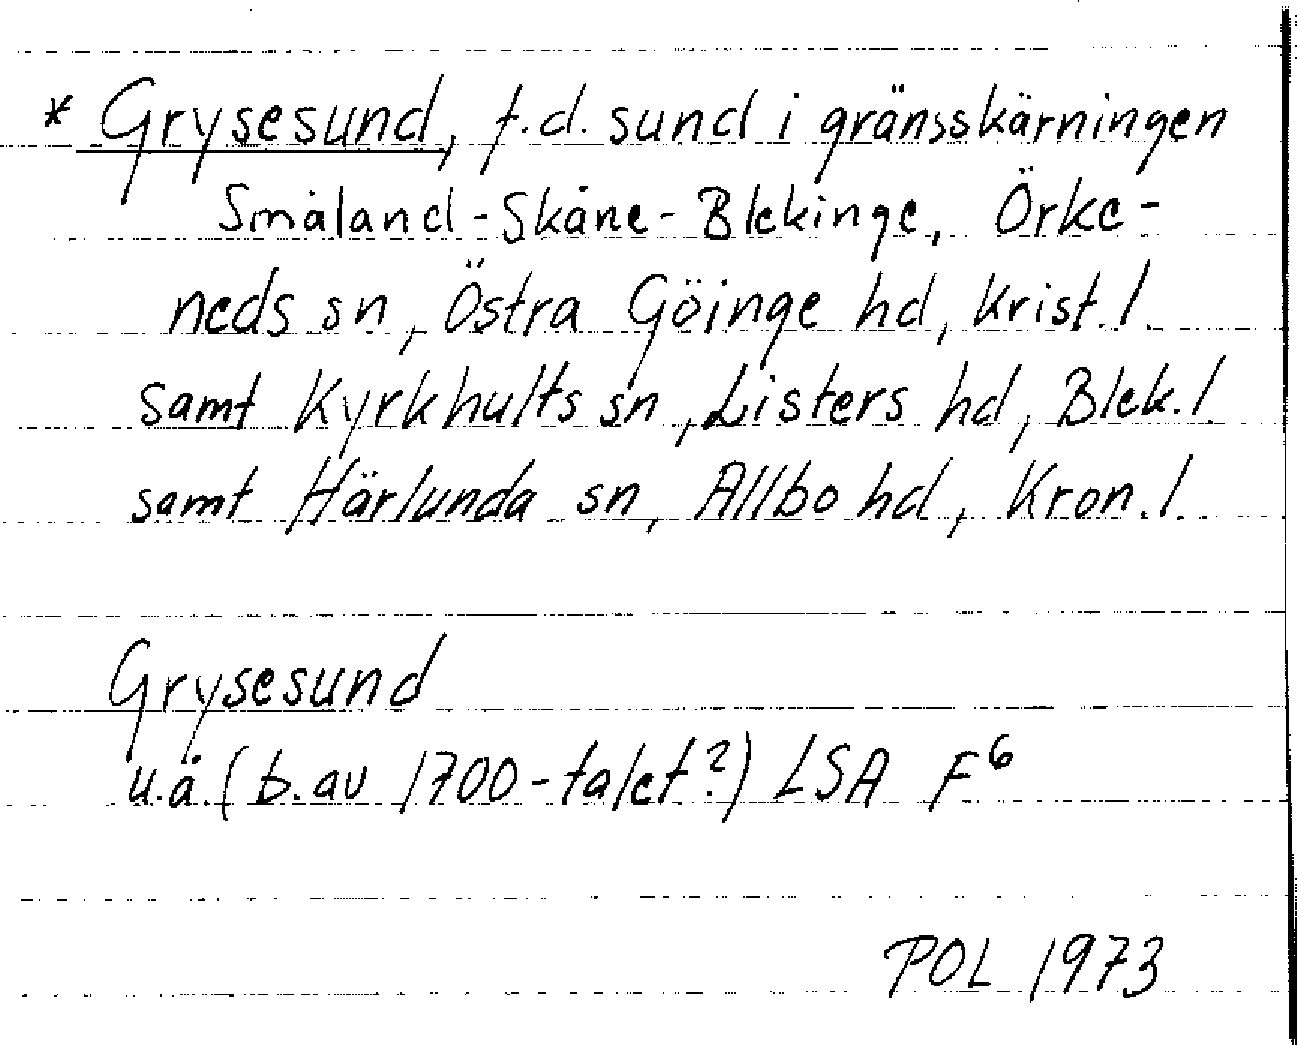 * Grysesund, f.d. sund i gränsskärningen
Småland-Skåne-Blekinge, Örke-
neds sn, Östra Göinge hd, Krist. l.
samt Kyrkhults sn, Listers hd, Blek. l.
samt Härlunda sn, Allbo hd, Kron. l.
Grysesund
u.ä. (b. av 1700-talet?) LSA F⁶
POL 1973